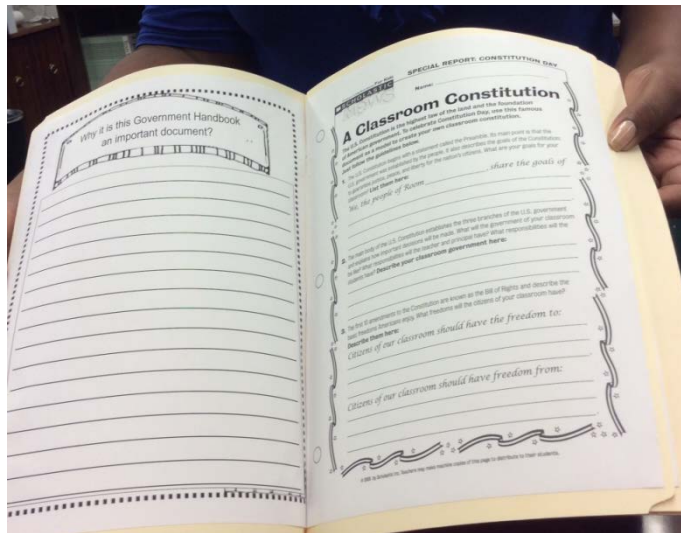 Why it is this Government Handbook
an important document?
For Kids
SCHOLASTIC
NEWS
SPECIAL REPORT: CONSTITUTION DAY
Name:
A Classroom Constitution
The U.S. Constitution is the highest law of the land and the foundation
of American government. To celebrate Constitution Day, use this famous
document as a model to create your own classroom constitution.
Just follow the guidelines below.
1. The U.S. Constitution begins with a statement called the Preamble. Its main point is that the
U.S. government was established by the people. It also describes the goals of the Constitution:
to guarantee justice, peace, and liberty for the nation's citizens. What are your goals for your
classroom? List them here:
We, the people of Room , share the goals of
2. The main body of the U.S. Constitution establishes the three branches of the U.S. government
and explains how important decisions will be made. What will the government of your classroom
be like? What responsibilities will the teacher and principal have? What responsibilities will the
students have? Describe your classroom government here:
3. The first 10 amendments to the Constitution are known as the Bill of Rights and describe the
basic freedoms Americans enjoy. What freedoms will the citizens of your classroom have?
Describe them here:
Citizens of our classroom should have the freedom to:
Citizens of our classroom should have freedom from:
by Scholastic Inc. Teachers may make machine copies of this page to distribute to their students.